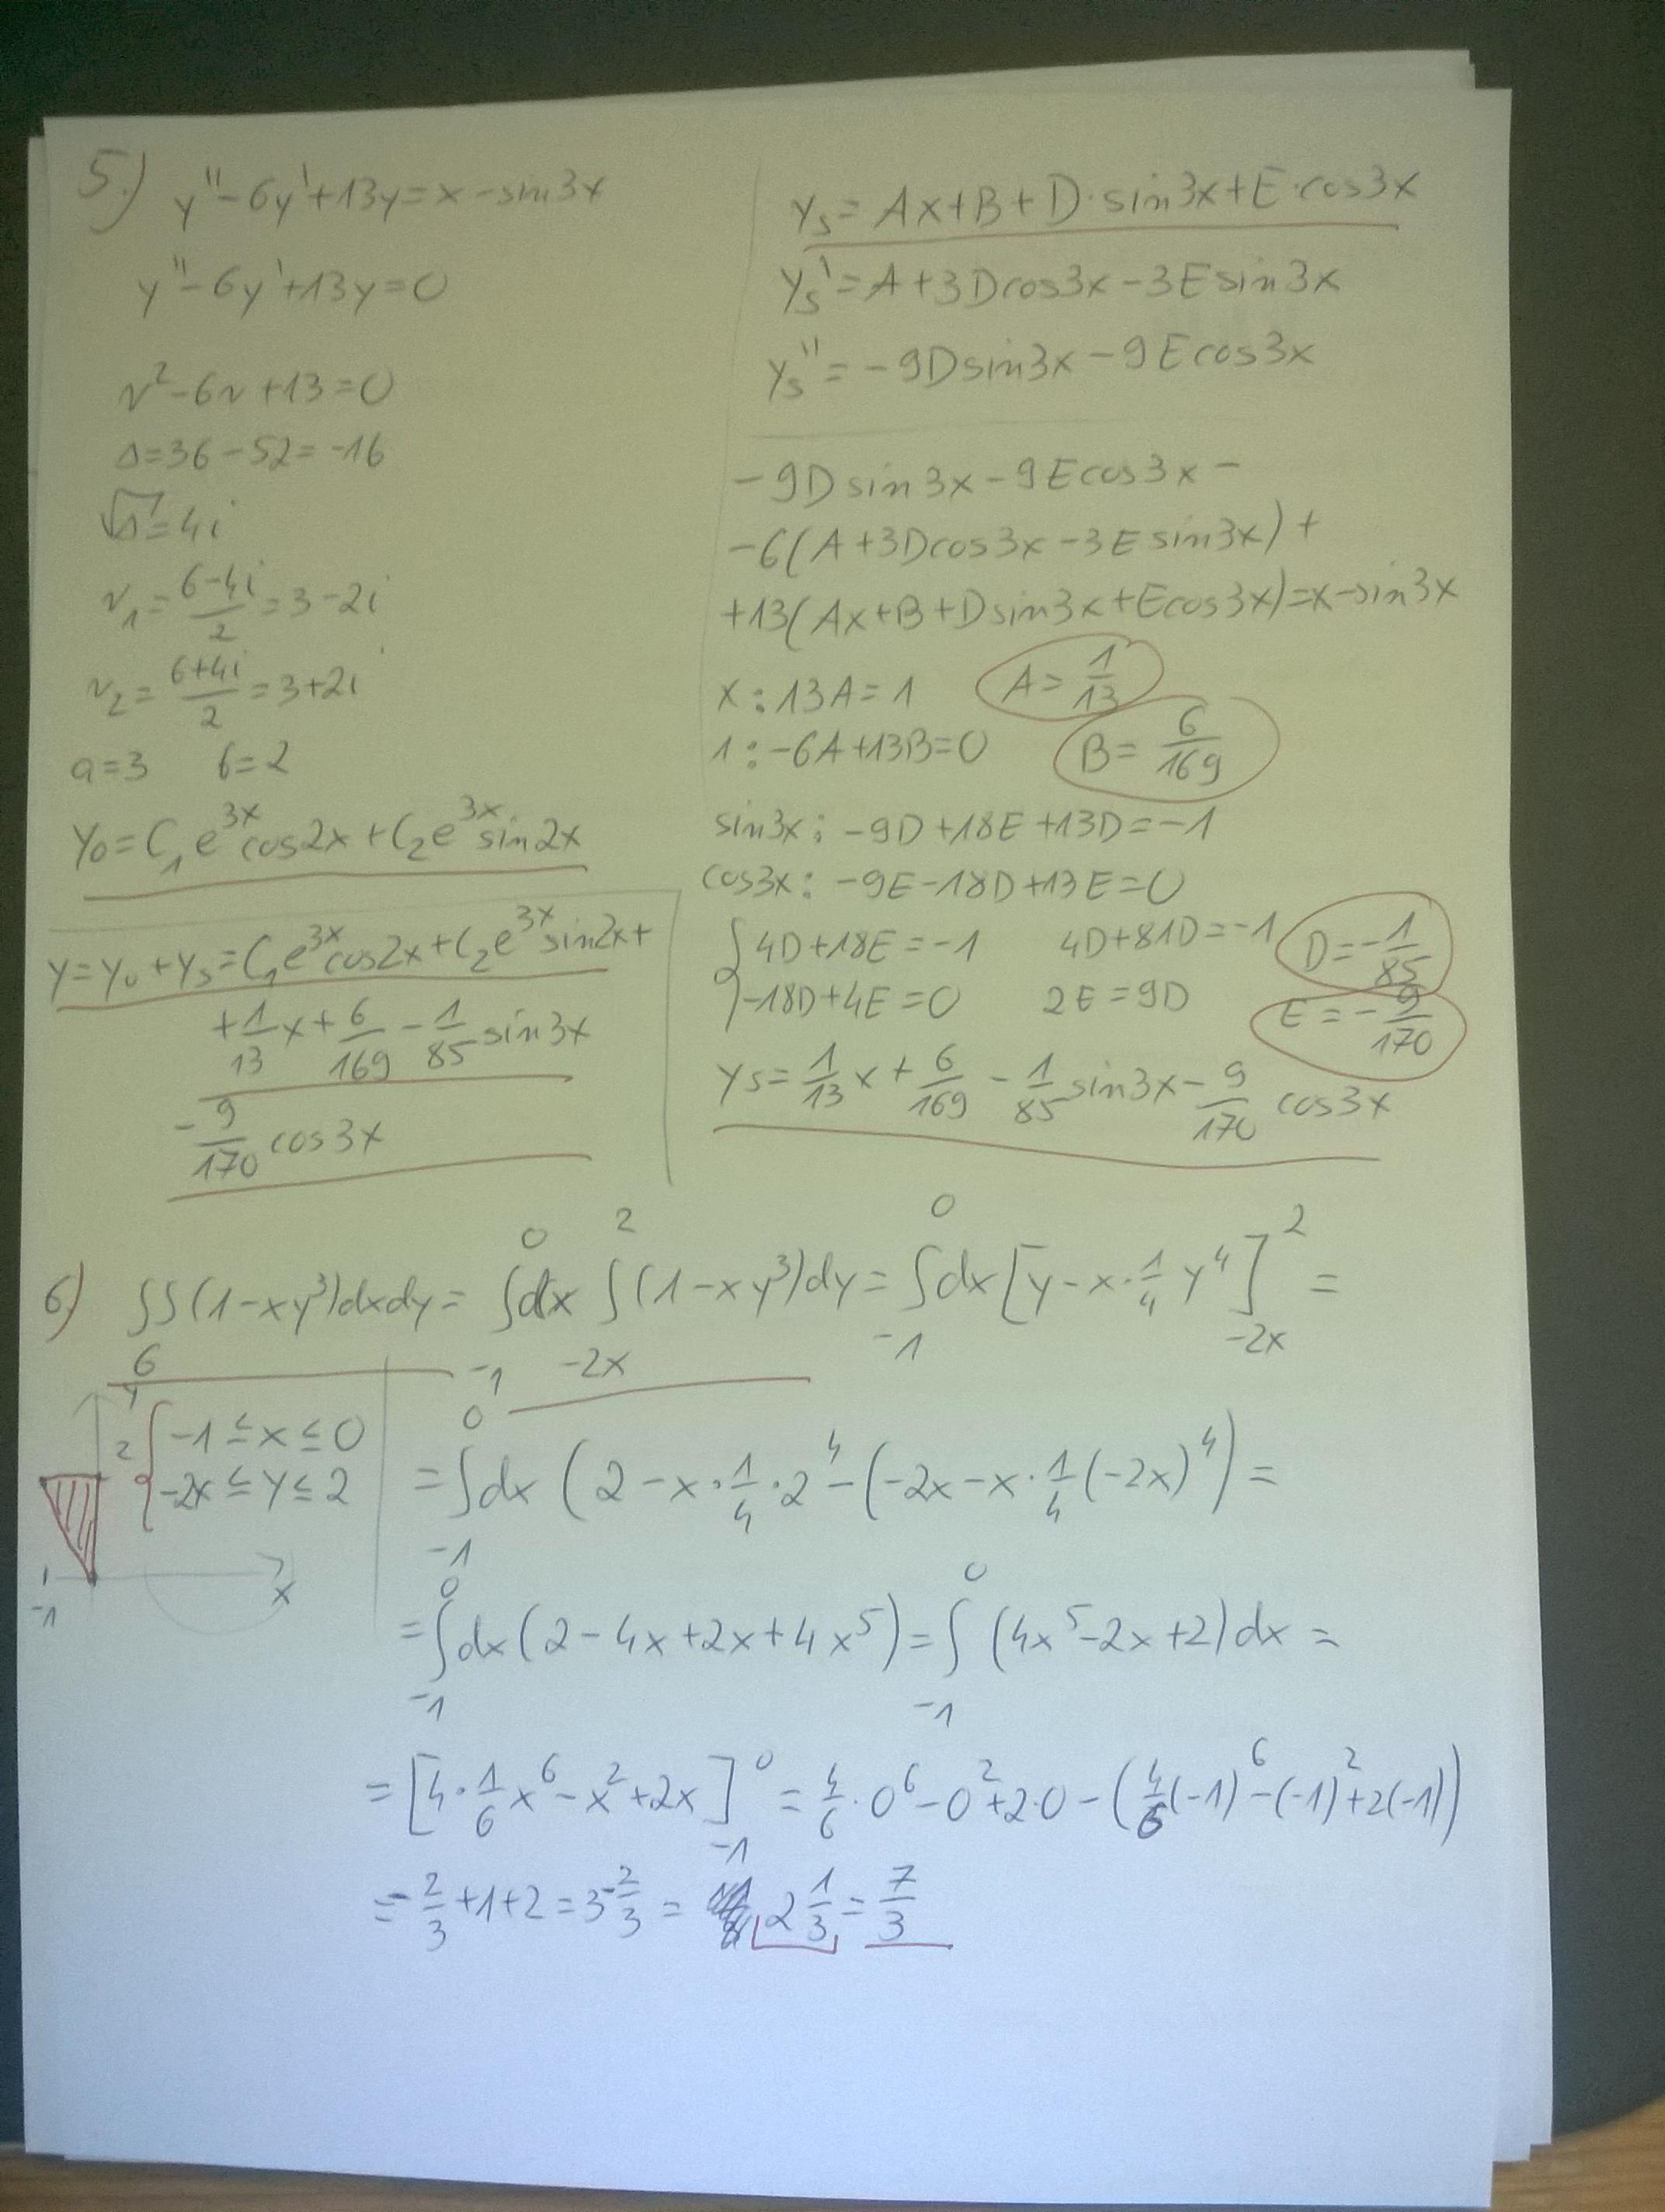 5.) y''-6y'+13y=x-sin3x
y''-6y'+13y=0
r²-6r+13=0
Δ=36-52=-16
√Δ=4i
r₁=(6-4i)/2=3-2i
r₂=(6+4i)/2=3+2i
a=3 b=2
y₀=C₁e^3x cos2x+C₂e^3x sin2x
y=y₀+ys=C₁e^3x cos2x+C₂e^3x sin2x+
+1/13 x+6/169-1/85 sin3x
-9/170 cos3x
ys=Ax+B+D·sin3x+E·cos3x
ys'=A+3Dcos3x-3Esin3x
ys''=-9Dsin3x-9Ecos3x
-9Dsin3x-9Ecos3x-
-6(A+3Dcos3x-3Esin3x)+
+13(Ax+B+Dsin3x+Ecos3x)=x-sin3x
x:13A=1 A=1/13
1:-6A+13B=0 B=6/169
sin3x:-9D+18E+13D=-1
cos3x:-9E-18D+13E=0
{4D+18E=-1 4D+81D=-1 D=-1/85
-18D+4E=0 2E=9D E=-9/170
ys=1/13 x+6/169-1/85 sin3x-9/170 cos3x
6) ∫∫_6 (1-xy³)dxdy=∫_-1^0 dx ∫_-2x^2 (1-xy³)dy=∫_-1^0 dx[y-x·1/4 y⁴]_-2x^2=
y
2
{-1≤x≤0
-2x≤y≤2
-1
x
=∫_-1^0 dx(2-x·1/4·2⁴-(-2x-x·1/4(-2x)⁴)=
=∫_-1^0 dx(2-4x+2x+4x⁵)=∫_-1^0 (4x⁵-2x+2)dx=
=[4·1/6 x⁶-x²+2x]_-1^0=4/6·0⁶-0²+2·0-(4/6(-1)⁶-(-1)²+2(-1))
=-2/3+1+2=3-2/3= 2 1/3=7/3